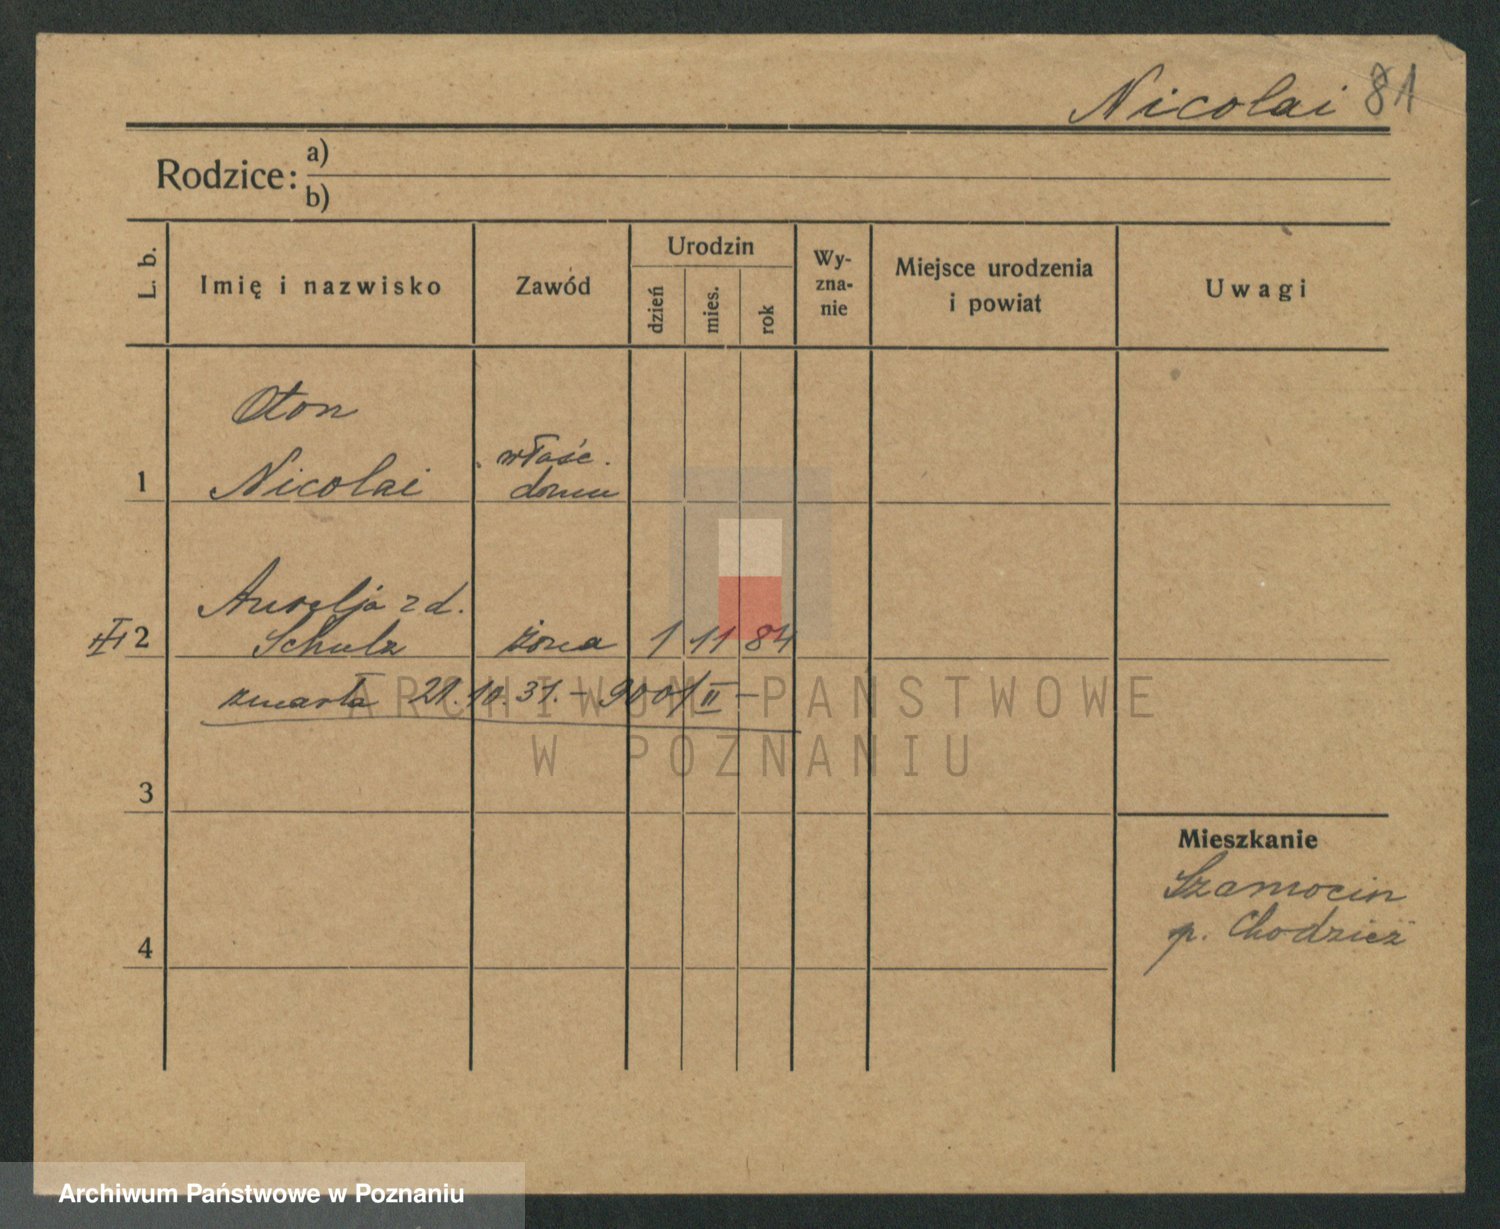 Nicolai 81
Rodzice:
a)
b)
L. b.
Imię i nazwisko
Zawód
Urodzin
dzień
mies.
rok
Wy-
zna-
nie
Miejsce urodzenia
i powiat
Uwagi
Oton
1 Nicolai
właśc.
domu
Aurelja z d.
2 Schulz żona 1 11 84
zmarła 21.10.31. – 900/II –
ARCHIWUM PAŃSTWOWE
W POZNANIU
3
Mieszkanie
Szamocin
p. Chodzież
4
Archiwum Państwowe w Poznaniu